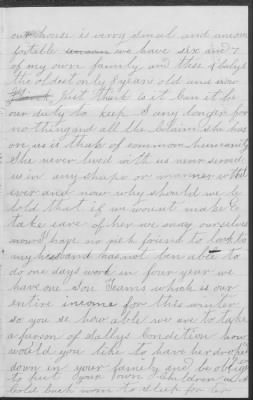 our house is verry small and uncom
fortible we have six and 7
of my own family and thee of babys
the oldest only 8 years old and now
Just think is it Can it be
our duty to keep S any longer for
nothing and all the Claim she has
on us is that of common humanity
She never lived with us never served
us in any shape or manner what
ever and now why should we be
told that if we wount make &
take care of her we may ourselves
now I have no rich friend to look to
my husband has not ben able to
do one days work in four year we
have one Son Teams which is our
entire income for this winter
so you se how able we are to take
a person of Sallys Condition how
would you like to have her droped
down in your family and be oblige
to put your own Children in a
Cold back room to sleep for her